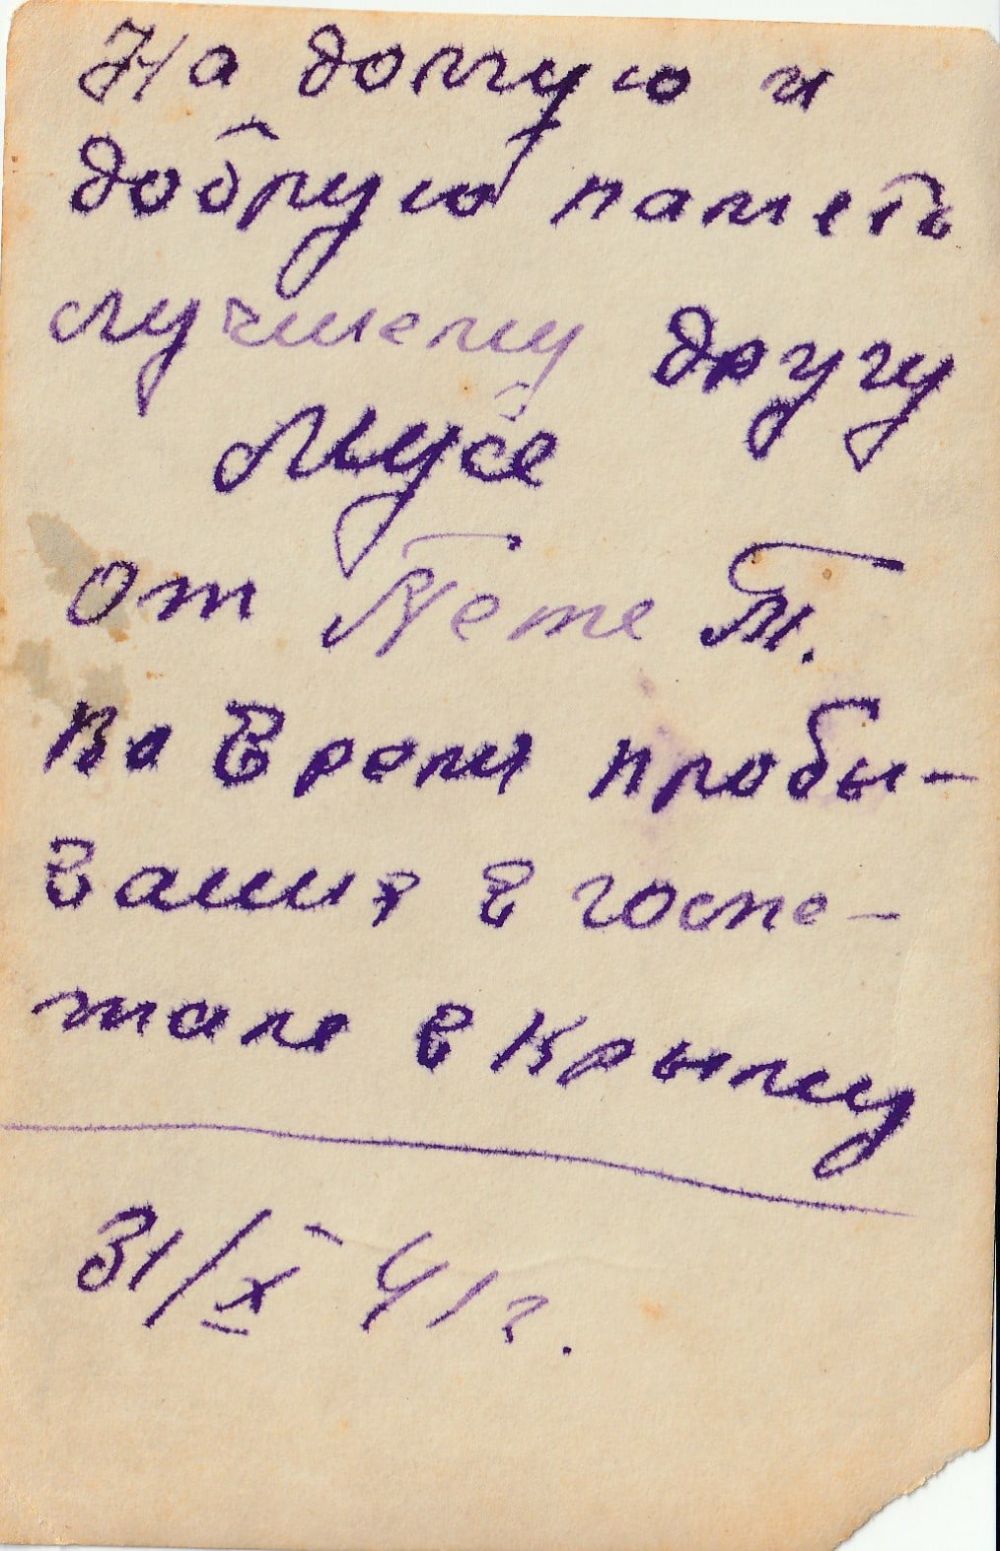 На долгую и
добрую паметь
лучшему другу
Мусе
от Пете Т.
Во Време пробы-
вания в госпе-
тале в Крыму
31/X 41 г.